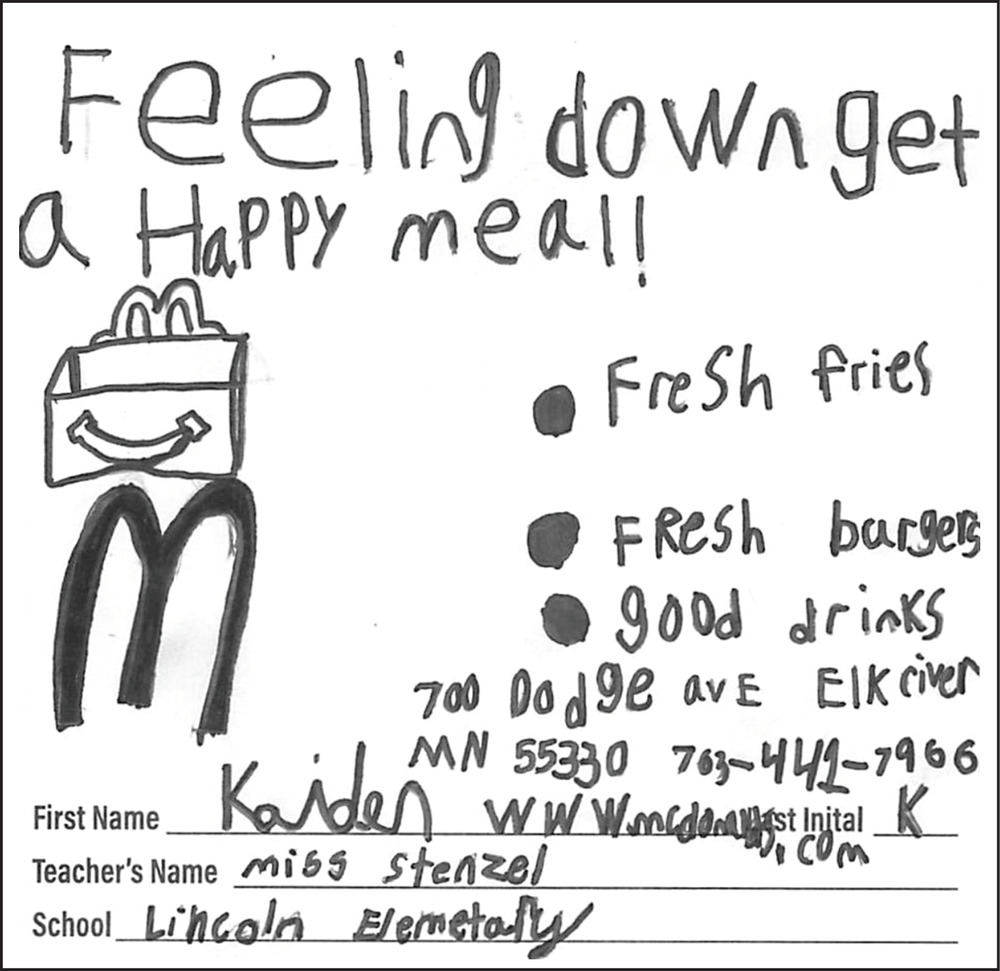 Feeling down get
a Happy meal!
Fresh fries
FResh burgers
good drinks
700 Dodge avE Elk river
MN 55330 763-441-7966
First Name Kaiden www.mcdonalds.com st Inital K
Teacher's Name miss stenzel
School Lincoln Elemetally